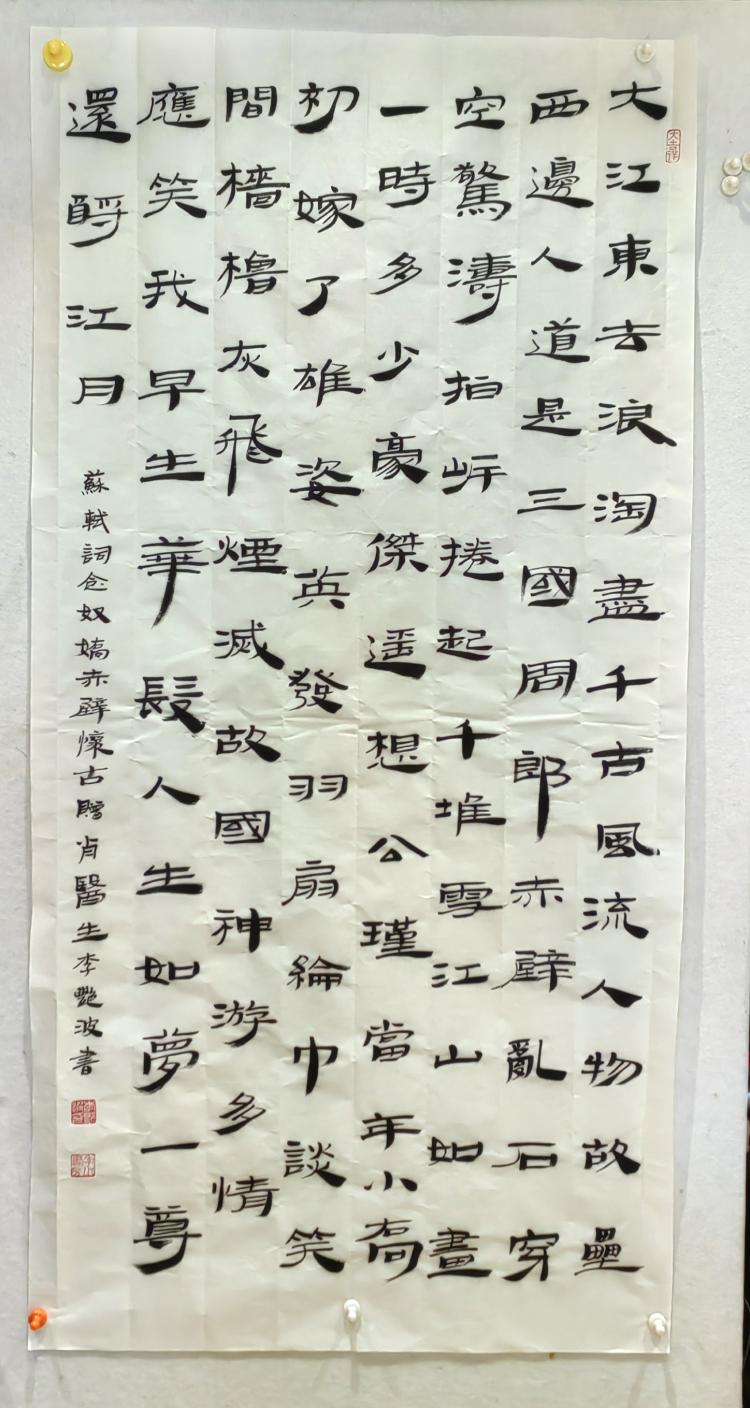 大江東去浪淘盡千古風流人物故壘
西邊人道是三國周郎赤壁亂石穿
空驚濤拍岸捲起千堆雪江山如畫
一時多少豪傑遥想公瑾當年小喬
初嫁了雄姿英發羽扇綸巾談笑
間檣櫓灰飛煙滅故國神游多情
應笑我早生華髮人生如夢一尊
還酹江月
蘇軾詞念奴嬌赤壁懷古贈肖醫生李艷波書